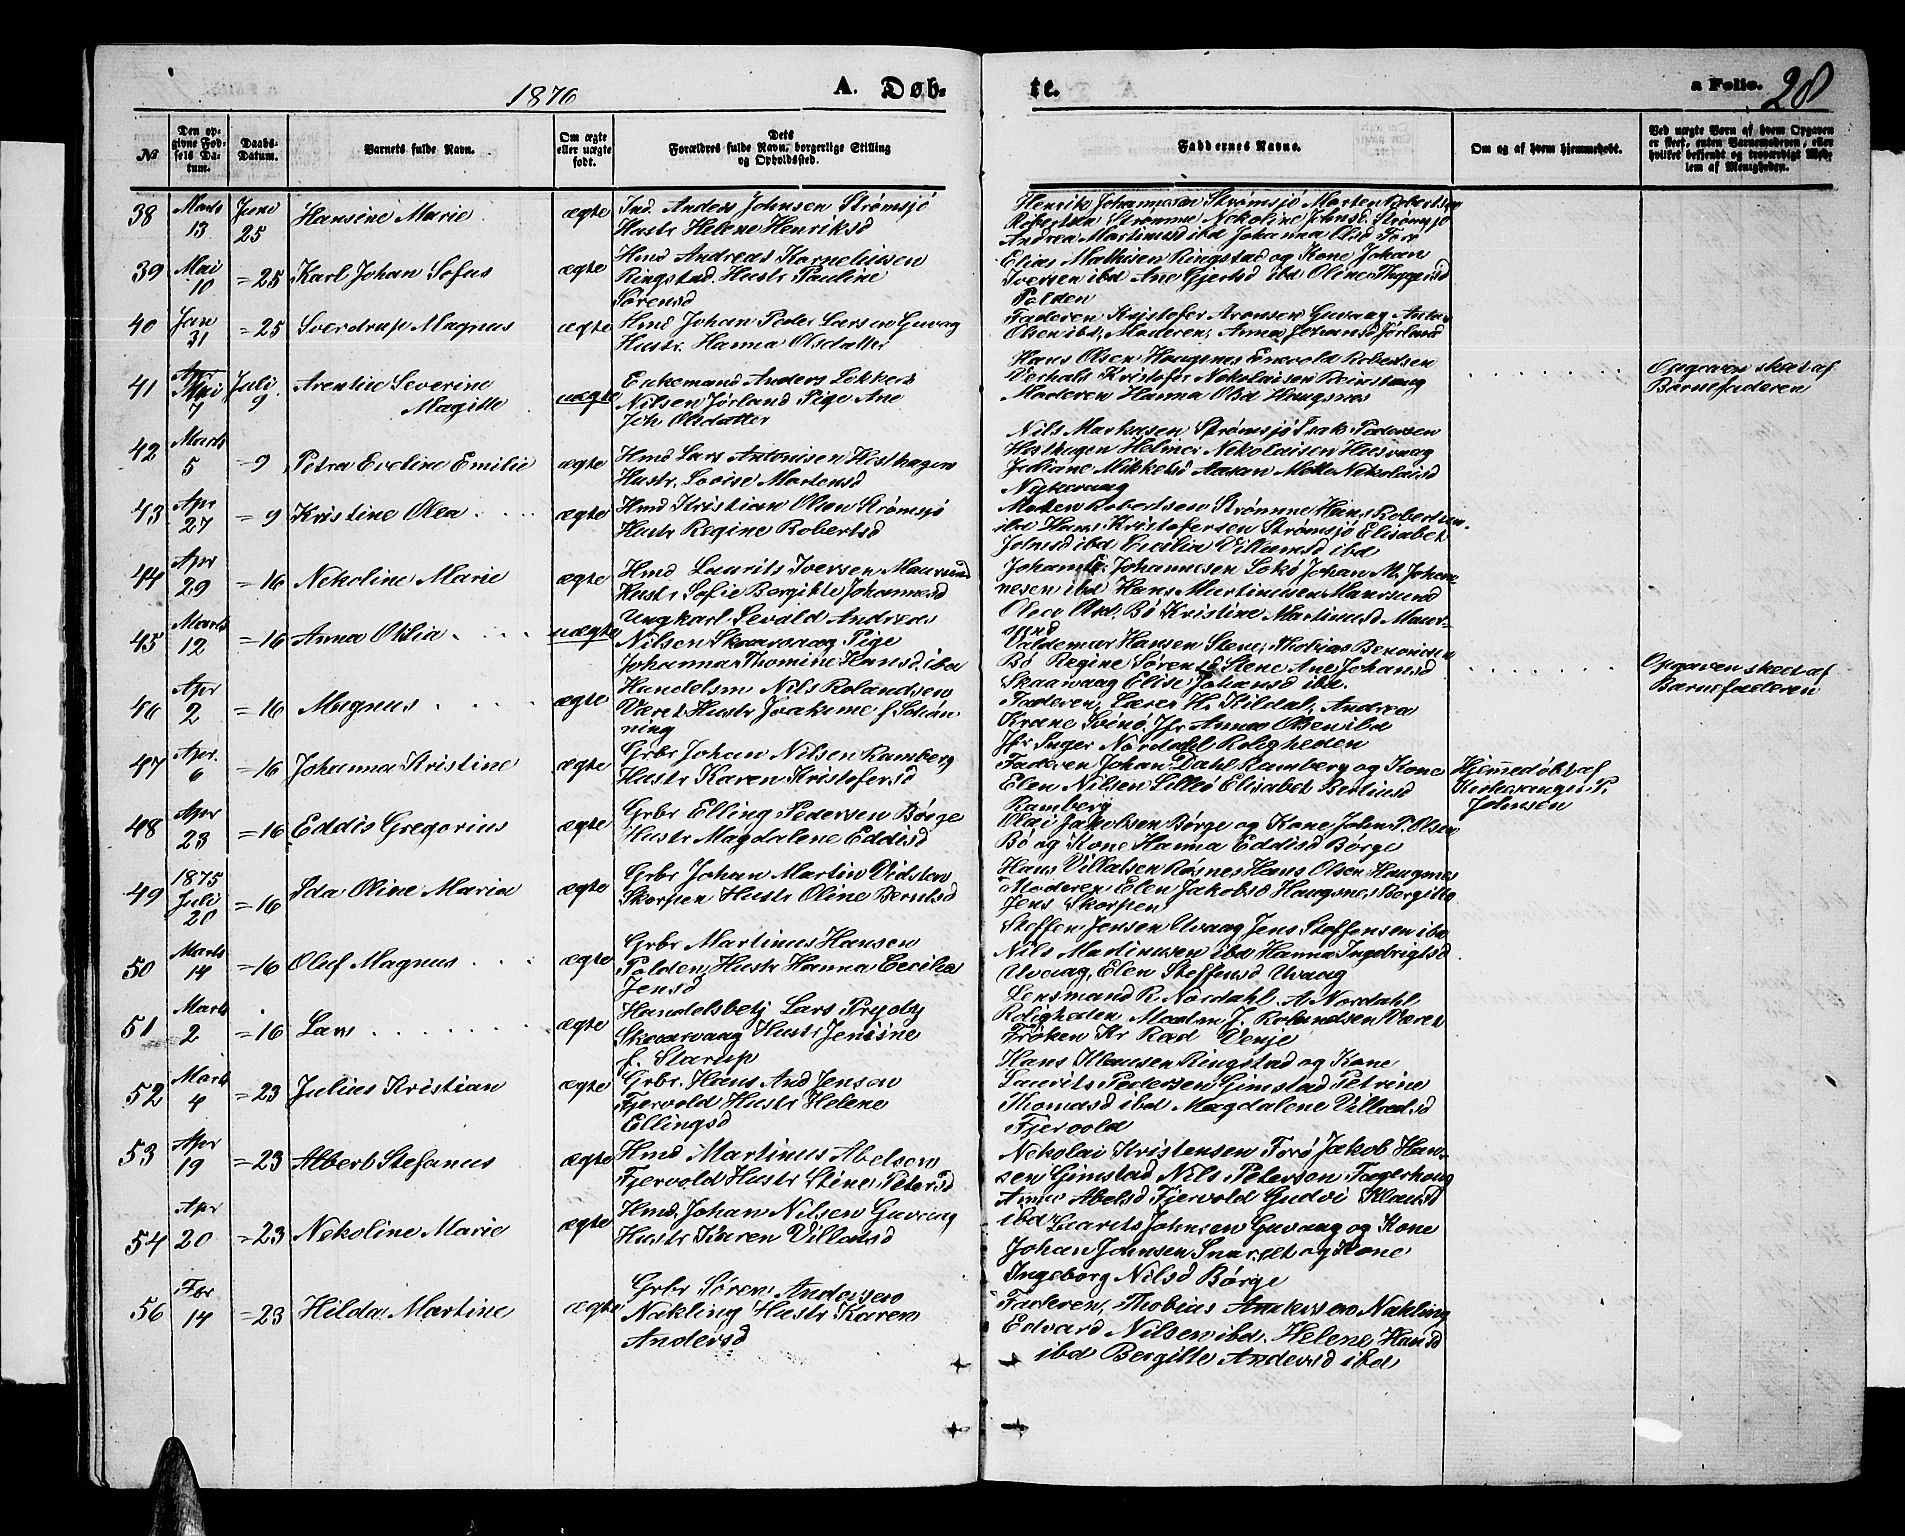 1876
A. Døb-
te.
a Folio. 28
№
Den op-
givne Fød-
sels Da-
tum.
Daabs-
Datum.
Barnets fulde Navn.
Om ægte
eller uægte
født.
Dets
Forældres fulde Navn, borgerlige Stilling
og Opholdssted.
Faddernes Navne.
Om og af hvem hjemmedøbt.
Ved uægte Børn af hvem Opgaven
er skeet, enten Barnemoderen, eller
hvilket bekjendt og troværdigt Med-
lem af Menigheden.
38 Marts 13 Juni 25 Hansine Marie ægte
Ind. Anders Johnsen Strømsjö
Hustr Helene Henriksd
Henrik Johannesen Strømsjö Morten Robertsen
Robertsen Strømme Nekoline Johnsd. Strömsjö
Andrea Martinusd ibd Johanna Olsd Forö
39 Mai 10 =25 Karl Johan Sofus ægte
Hmd Andreas Korneliussen
Ringstad. Hustr Pauline
Sörensd
Elias Mathisen Ringstad og Kone Johan
Iversen ibd Ane Gjertsd ibd Oline
Polden
40 Jan 31 =25 Sverdrup Magnus ægte
Hmd Johan Peder Larsen Guvaag
Hustr. Hanna Olsdatter
Faderen Kristofer Aronsen Guvaag Anton
Olsen ibd, Moderen, Anna Johansd Jörland
41 Apr 7 Juli 9. Arentine Severine
Magitte uægte
Enkemand Anders Lökkers
Nilsen Jörland Pige Ane
Joh Olsdatter
Hans Olsen Haugsnes Enevold Robertsen
Verhals Kristofer Nekolaisen Reinsvaag
Moderen Hanna Olsd Haugsnes
Opgaven skeet af
Barnefaderen
42 Marts 5 =9 Petra Eveline Emilie ægte
Hmd Lars Antonisen Hesthagen
Hustr. Lovise Martensd
Nils Markusen Strömsjö Isak Pedersen
Hesthagen Helmer Nekolaisen
Juliane Mikkelsd Aasan Mette Nekolaisd
Nykvaag
43 Apr 27 =9 Kristine Olea ægte
Hmd Kristian Olsen Strömsjö
Hustr Regine Robertsd
Morten Robertsen Strömme Hans Robertsen
ibd Hans Kristofersen Strömsjö Elisabet
Johnsd ibd Cecilia Villumsd ibd
44 Apr 29 =16 Nekoline Marie ægte
Hmd Laurits Iversen Maursund
Hustr Sofie Bergitte Johannesd
Johannesen Lokö Johan M. Johan-
nesen ibd Hans Martinusen Maursund
Olea Olsd. Bö Kristine Martinusd Maur-
sund
45 Marts 12 =16 Anna Otilia uægte
Ungkarl Sevald Andreas
Nilsen Skaarvaag Pige
Johanna Thomine Hansd, ibd
Valdemar Hansen Stene, Thobias Benonisen
Bö Regine Sörensd Stene Ane Johansd
Skaarvaag Elise Johansd ibd.
Opgaven skeet af
Barnefaderen
46 Apr 2 =16 Magnus ægte
Handelsm Nils Rolandsen
Været Hustr Joakime f Schön-
ning
Faderen, Lærer H. Kildal, Andrea
Krane Svinö, Jfr Anna Olsen ibd
Jfr Inger Nordahl Roligheden
47 Apr. 6 =16 Johanna Kristine ægte
Grbr Johan Nilsen Ramberg
Hustr Karen Kristofersd
Faderen Johan Dahl Ramberg og Kone
Elen Nilsen Lillö Elisabet Bertiusd
Ramberg
Hjemmedøbt af
Kirkesanger P.
Johnsen
48 Apr 23 =16 Eddis Gregorius ægte
Grbr Elling Pedersen Börge
Hustr Magdalene Eddisd
Olai Jakobsen Börge og Kone John P. Olsen
Bö og Kone Hanna Eddisd Börge
49 1875 Juli 20 =16 Ida Oline Maria ægte
Grbr Johan Martin Vidsten
Skorpen Hustr Oline Berntsd
Hans Villatsen Røsnes Hans Olsen Haugsnes
Moderen Elen Jakobsd Haugsnes Bergitta
Jens Skorpen
50 Marts 14 =16 Oluf Magnus ægte
Grbr Martinus Hansen
Polden, Hustr Hanna Cecilia
Jensd
Steffen Jensen Uvaag Jens Steffensen ibd
Nils Martinusen ibd Hanna Ingebrigtsd
Uvaag, Elen Steffensd Uvaag
51 Marts 2 =16 Lars ægte
Handelsbetj Lars Prydtz
Skaarvaag Hustr Jensine
f. Starup
Lensmand R. Nordahl. A Nordahl
Roligheden Madm J. Rolandsen Været
Frøken Kr Rad Venje
52 Marts 4 =23 Julius Kristian ægte
Grbr. Hans And Jensen
Fjervold Hustr Helene
Ellingsd
Hans Ringstad og Kone
Laurits Pedersen Gimstad Petrine
Thomasd ibd Magdalene Villadsd
Fjervold
53 Apr 19 =23 Albert Stefanus ægte
Hmd Martinus Abelsen
Fjervold Hustr Stine Petersd
Nekolai Kristensen Forö Jakob Han-
sen Gimstad Nils Petersen Fagerhaug
Anne Abelsd Fjervold Gudvi Klausd
ibd
54 Apr 20 =23 Nekoline Marie ægte
Hmd, Johan Nilsen Guvaag
Hustr Karen Villumsd
Laurits Johnsen Guvaag og Kone
Johan Johnsen Snaræt og Kone
Ingeborg Nilsd Börge
56 Febr 14 =23 Hilda Martine ægte
Grbr Sören Andersen
Nakling Hustr Karen
Andersd
Faderen, Thobius Andersen Nakling
Edvard Nilsen ibd. Helene Hansd
ibd Bergitte Andersd ibd